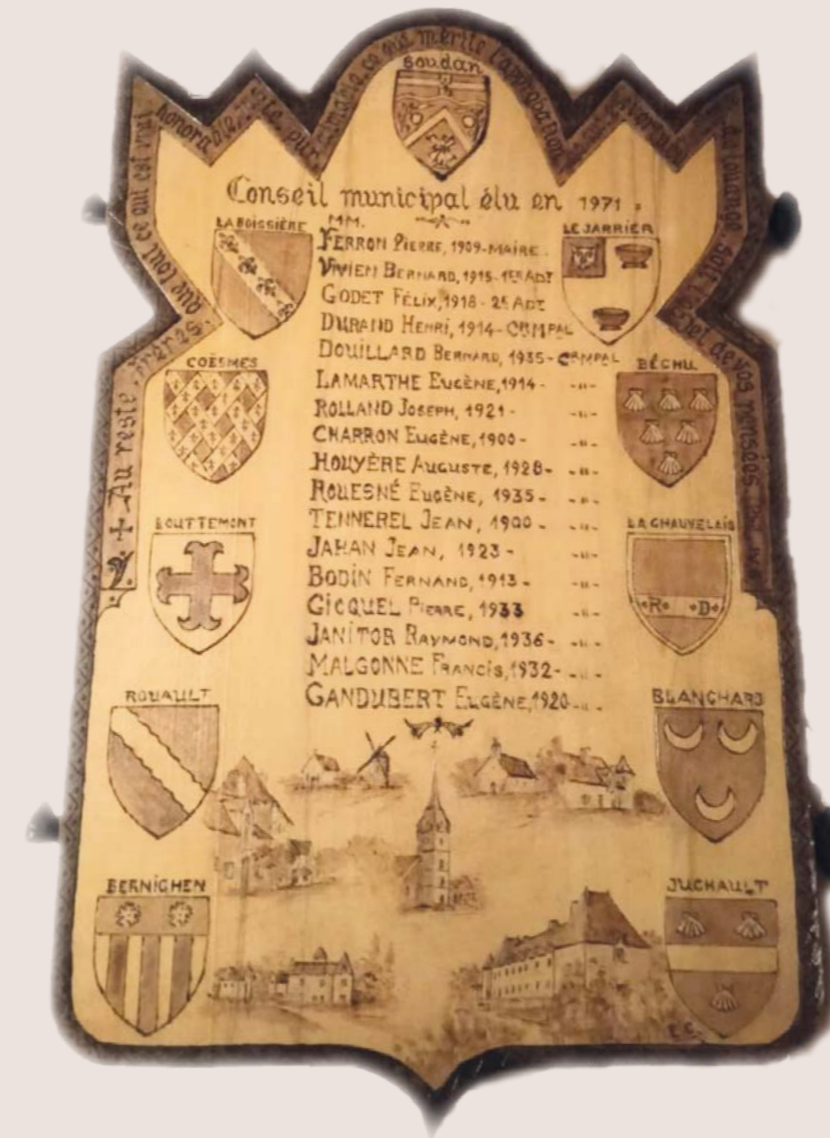 Au reste, Frères, que tout ce qui est vrai honorable, juste, pur, aimable, ce qui mérite l'approbation, ce qui est vertueux de louange, soit l'objet de vos pensées
Soudan
Conseil municipal élu en 1971.
MM.
FERRON PIERRE, 1909-MAIRE.
VIVIEN BERNARD, 1915-1ER ADT
GODET FÉLIX, 1918-2E ADT
DURAND HENRI, 1914-CER MPAL
DOUILLARD BERNARD, 1935-CER MPAL
LAMARTHE EUGÈNE, 1914- -"-
ROLLAND JOSEPH, 1921- -"-
CHARRON EUGÈNE, 1900- -"-
HOUYÈRE AUGUSTE, 1928- -"-
ROUESNÉ EUGÈNE, 1935- -"-
TENNEREL JEAN, 1900- -"-
JAHAN JEAN, 1923- -"-
BODIN FERNAND, 1913- -"-
GICQUEL PIERRE, 1933 -"-
JANITOR RAYMOND, 1936- -"-
MALGONNE FRANCIS, 1932- -"-
GANDUBERT EUGÈNE, 1920- -"-
LA BOISSIÈRE
COËSMES
BOUTTEMONT
ROUAULT
BERNIGHEN
LE JARRIER
BÉCHU
LA CHAUVELAIS
R D
BLANCHARD
JUCHAULT
E.C.